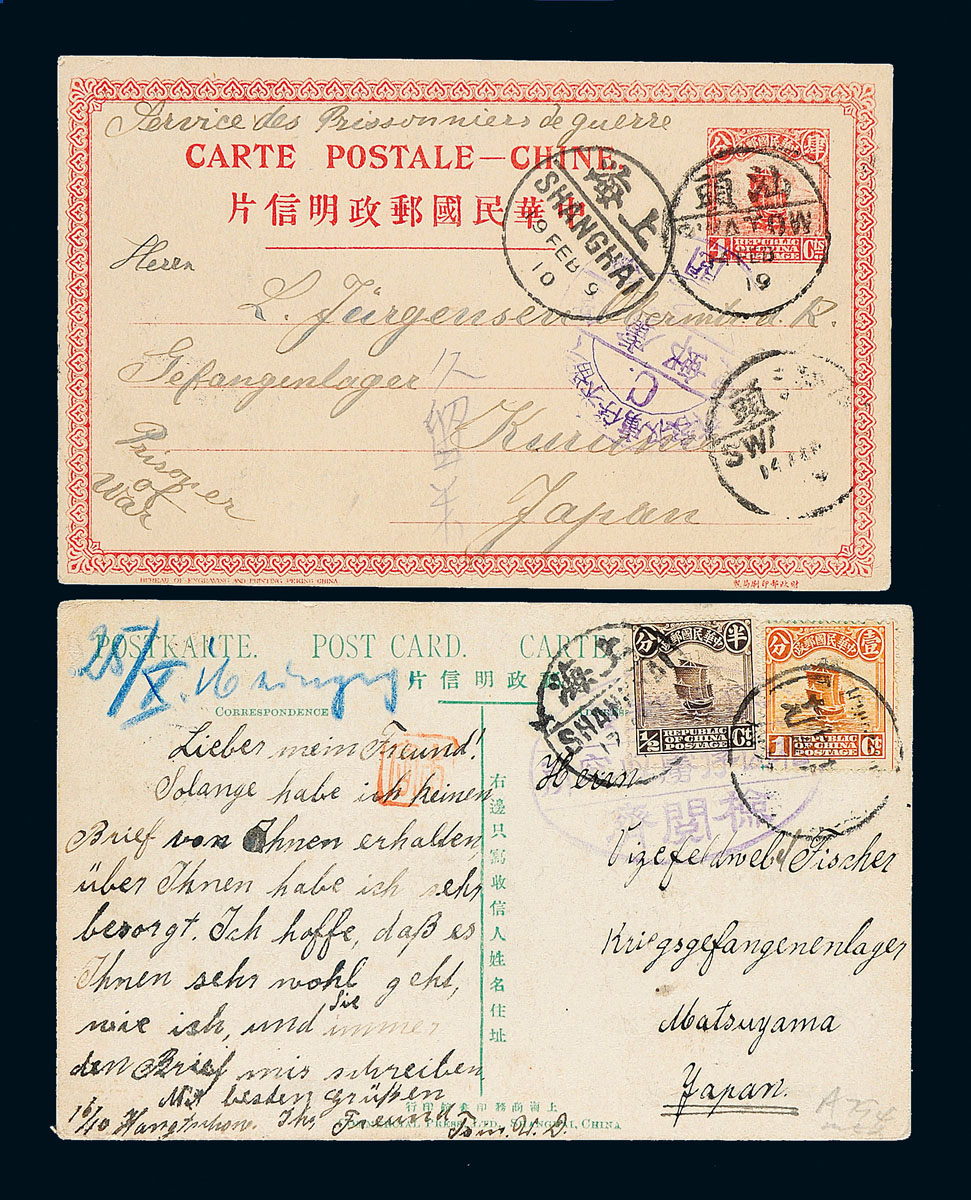 Service des Prissonniers de guerre
CARTE POSTALE—CHINE.
片信明政郵國民華
分 肆
4 REPUBLIC OF CHINA POSTAGE Cts
上海
SHANGHAI
19 FEB 9
10
汕頭
FEB
19
Herrn
L. Jürgensen Obermtr. d. R.
Gefangenlager
C.
Kurume
頭
SWA
Prisoner
of
War
Japan
BUREAU OF ENGRAVING AND PRINTING PEKING CHINA
製局刷印部政財
POSTKARTE. POST CARD. CARTE
片信明政郵
25/X.16
CORRESPONDENCE
分 政郵國民華中 半
REPUBLIC OF CHINA POSTAGE
1/2 Ct
分 政郵國民華中 壹
REPUBLIC OF CHINA POSTAGE
1 Ct
上海
SHANGHAI
Lieber mein Freund!
Solange habe ich keinen
Brief von Ihnen erhalten,
über Ihnen habe ich sehr
besorgt. Ich hoffe, daß es
Ihnen sehr wohl geht,
wie ich, und Sie immer
den Brief mis schreiben
Mit besten grüßen
16/10 Ihr Freund
右邊只寫收信人姓名住址
Herrn
閲檢
Vizefeldwebel Fischer
Kriegsgefangenenlager
Matsuyama
Japan.
行印館書印務商海上
COMMERCIAL PRESS LTD. SHANGHAI, CHINA